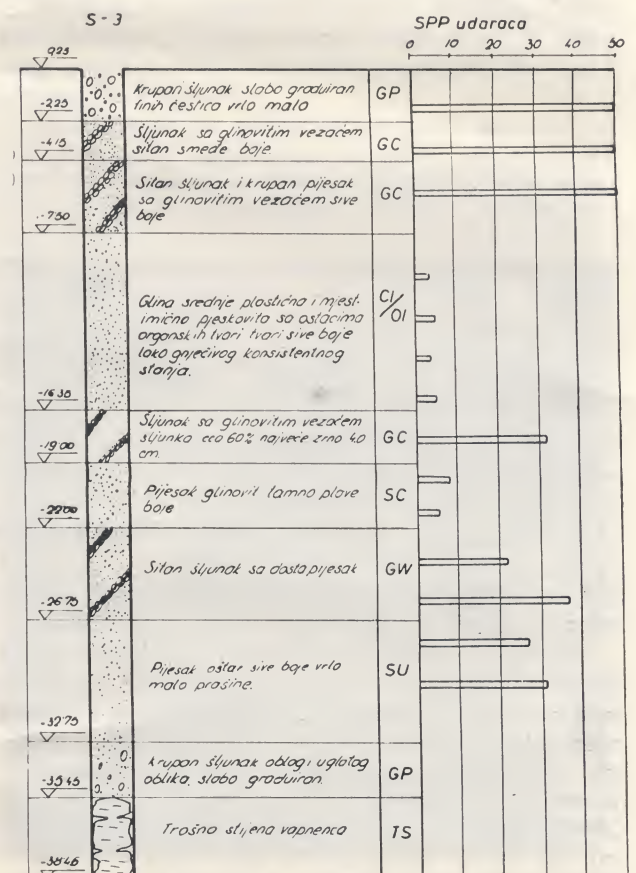 S - 3
SPP udaraca
0 10 20 30 40 50
925
Krupan šljunak slabo graduiran
finih čestica vrlo malo
GP
-2.25
Šljunak sa glinovitim vezačem
sitan smeđe boje.
GC
-4.15
Sitan šljunak i krupan pijesak
sa glinovitim vezačem sive
boje
GC
-7.50
Glina srednje plastična i mjest-
imično pjeskovita sa ostacima
organskih tvari tvari sive boje
lako gnječivog konsistentnog
stanja.
CI/OI
-16.35
Šljunak sa glinovitim vezačem
šljunka cca 60% najveće zrno 4.0
cm.
GC
-19.00
Pijesak glinovit tamno plave
boje
SC
-22.00
Sitan šljunak sa dosta pijesak
GW
-26.75
Pijesak oštar sive boje vrlo
malo prašine.
SU
-32.75
Krupan šljunak oblog i uglatog
oblika, slabo graduiran.
GP
-35.45
Trošna stijena vapnenca
TS